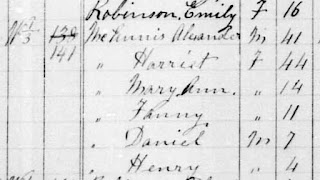 Robinson, Emily F 16
139 McAnnis Alexander M 41
141 " Harriet F 44
" Mary Ann " 14
" Fanny " 11
" Daniel M 7
" Henry " 4